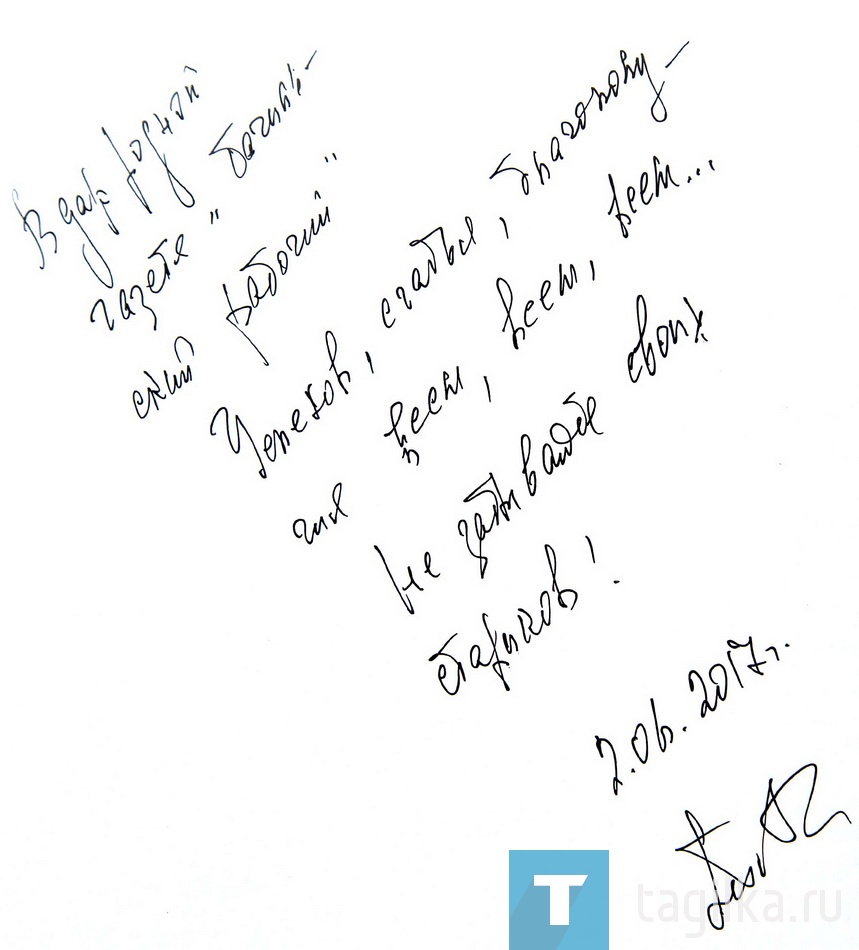 В дар родной
газете "Тагиль-
ский рабочий"
Успехов, счастья, благополу-
чия всем, всем, всем...
Не забывайте своих
стариков!
2.06.2017г.
T tagilka.ru